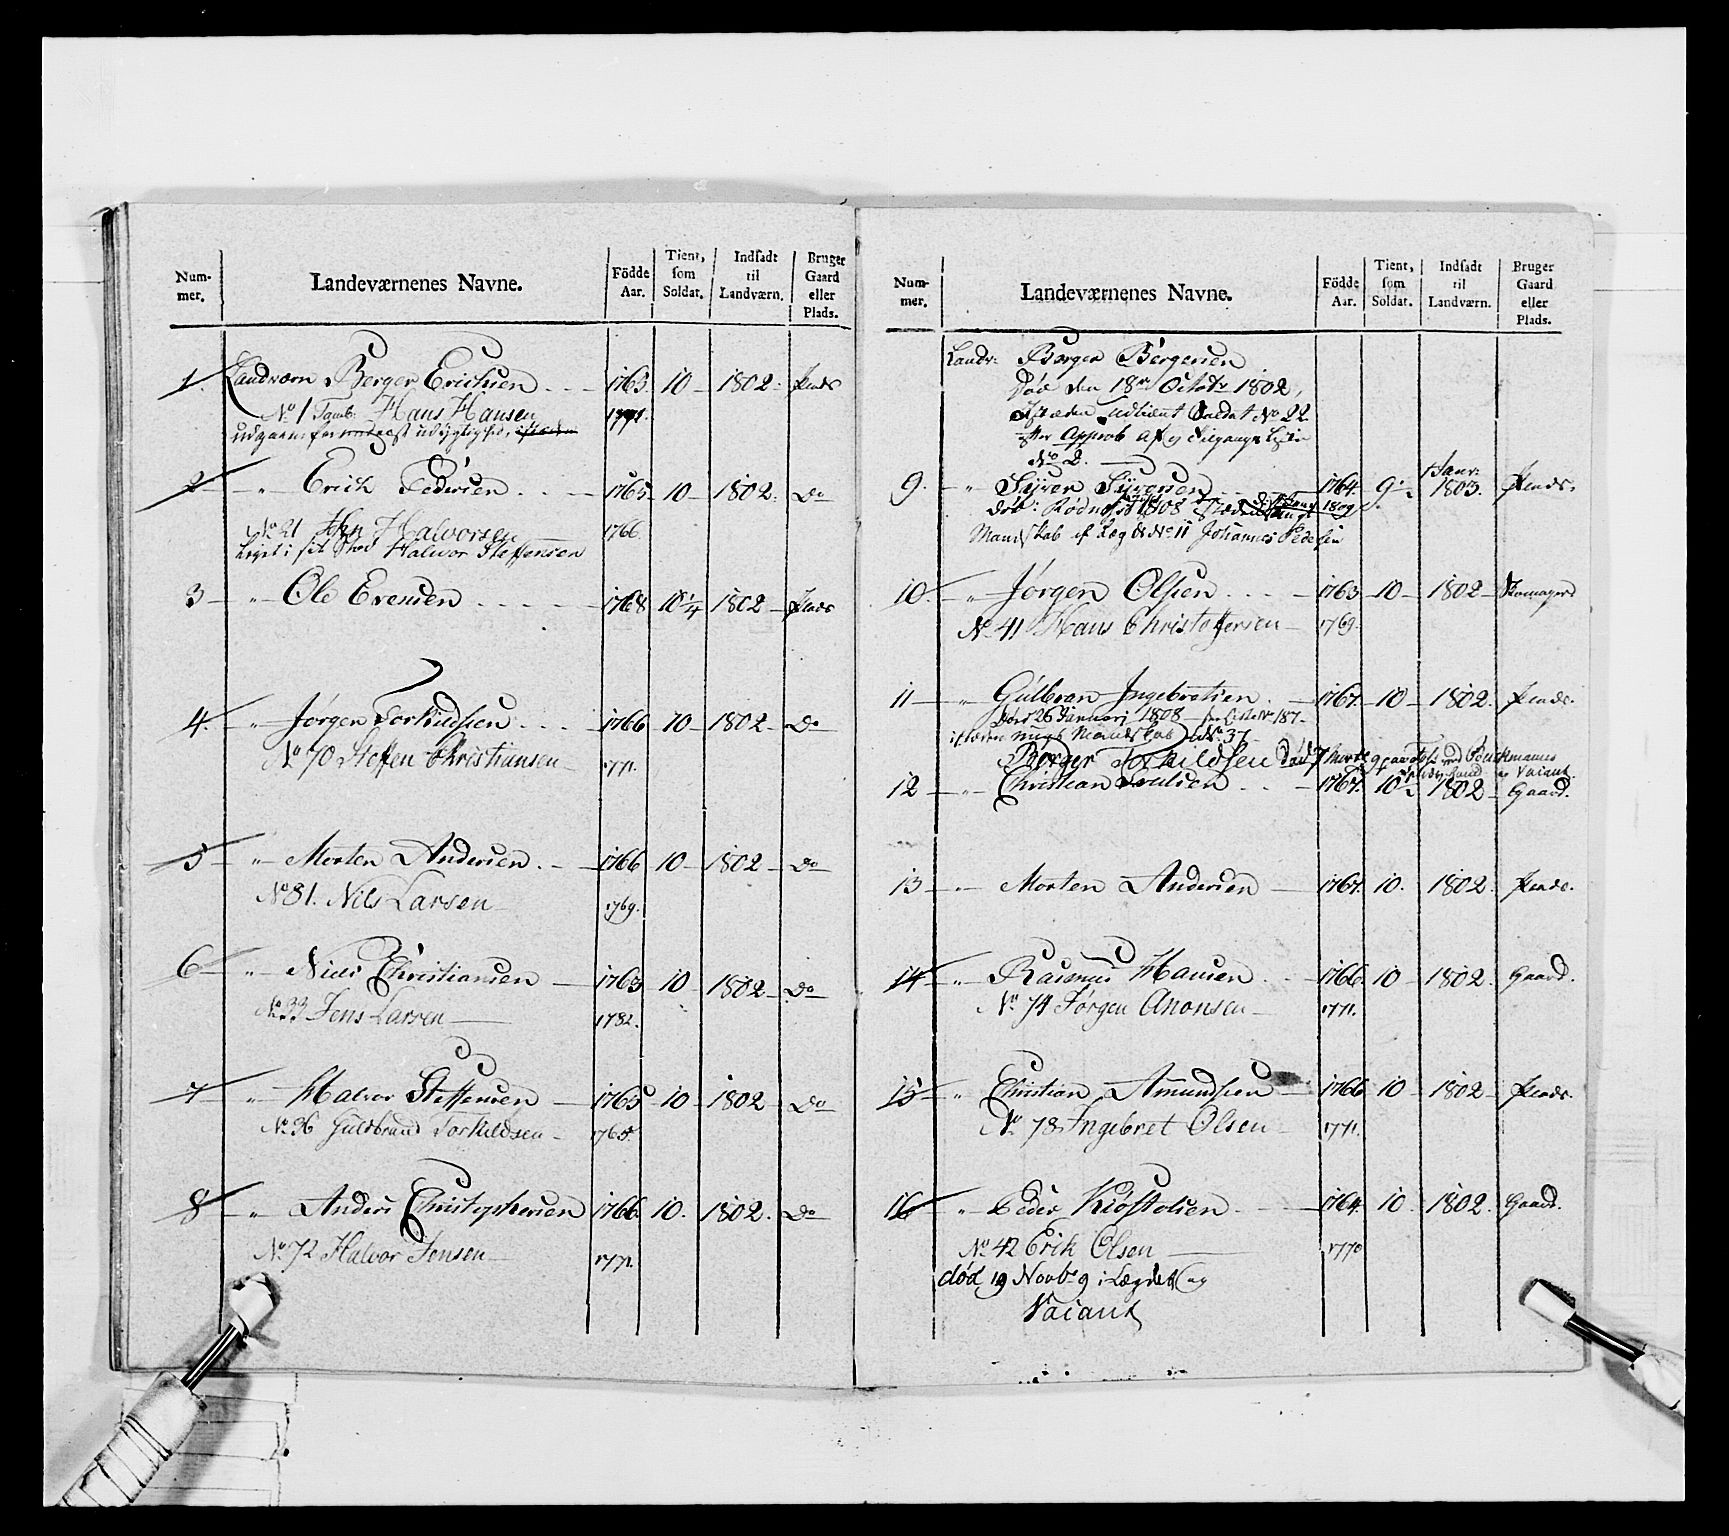 Num-
mer.
Landeværnenes Navne.
Födde
Aar.
Tient,
som
Soldat.
Indsadt
til
Landværn.
Bruger
Gaard
eller
Plads.
1. Landværn Berger Erichsen - - - 1763. 10 - 1802. Plads
No 1 Tamb: Hans Hansen 1771.
udgaaer for
2 - " - Erich Pedersen . . - 1765. 10 - 1802. Do
No 21 Jhn Halvorsen 1766.
i sit Sted Halvor Steffensen
3 - " - Ole Evensen - - - - 1768 10 1/4 1802 - Plads
4. - " - Jørgen Torkildsen . . . 1766 10 - 1802 - Do
No 70 Steffen Christiansen - 1771.
5 - " - Morten Andersen . - 1766 10 - 1802 - Do
No 81. Nils Larsen - 1769.
6 - " - Niels Christiansen - 1763 10 1802 - Do
No 33 Jens Larsen - 1782.
7 - " - Halvor Steffensen - 1765 10 - 1802 - Do
No 36 Guldbrand Torkildsen - 1765.
8 - " Anders Christophersen 1766. 10. 1802. Do
No 72 Halvor Jensen - 1771.
Num-
mer.
Landeværnenes Navne.
Födde
Aar.
Tient,
som
Soldat.
Indsadt
til
Landværn.
Bruger
Gaard
eller
Plads.
Landv: Berger Bergersen
Død den 18de Octobr 1802,
Isteden Udtient Soldat No 22
efter Approb af og Tilgangs Liste
No 2.
9. - " - Syver Syversen 1764. 9 1/2 Janr: 1803. Plads.
død 1808
Mandskab af Læg No 11 Johannes Pedersen
10. - " - Jørgen Olsen . . . - 1763 10 - 1802 - Skomager
No 41 Hans Christoffersen - 1769.
11 - " - Gulbran Ingebretsen . - 1767. 10 - 1802. Plads.
Død 26 Januarj 1808 - 187 -
isteden Mandskab No 37 -
Berger Torkildsen død
12 - " - Christian Poulsen . . - 1767. 10 1/2 1802 - Gaard.
13 - " - Morten Andersen - 1767. 10. 1802. Plads.
14 - " - Rasmus Hansen . . 1766. 10 - 1802. Gaard.
No 74 Jørgen Anonsen - 1771.
15 - " Christian Amundsen - 1766 10 - 1802 - Plads.
No 78 Ingebret Olsen - 1771.
16 - " - Peder Kiøstolsen . - 1764. 10 . 1802. Gaard.
No 42 Erik Olsen - 1770
død 19 Novbr 9 i Lægdet og
Vacant